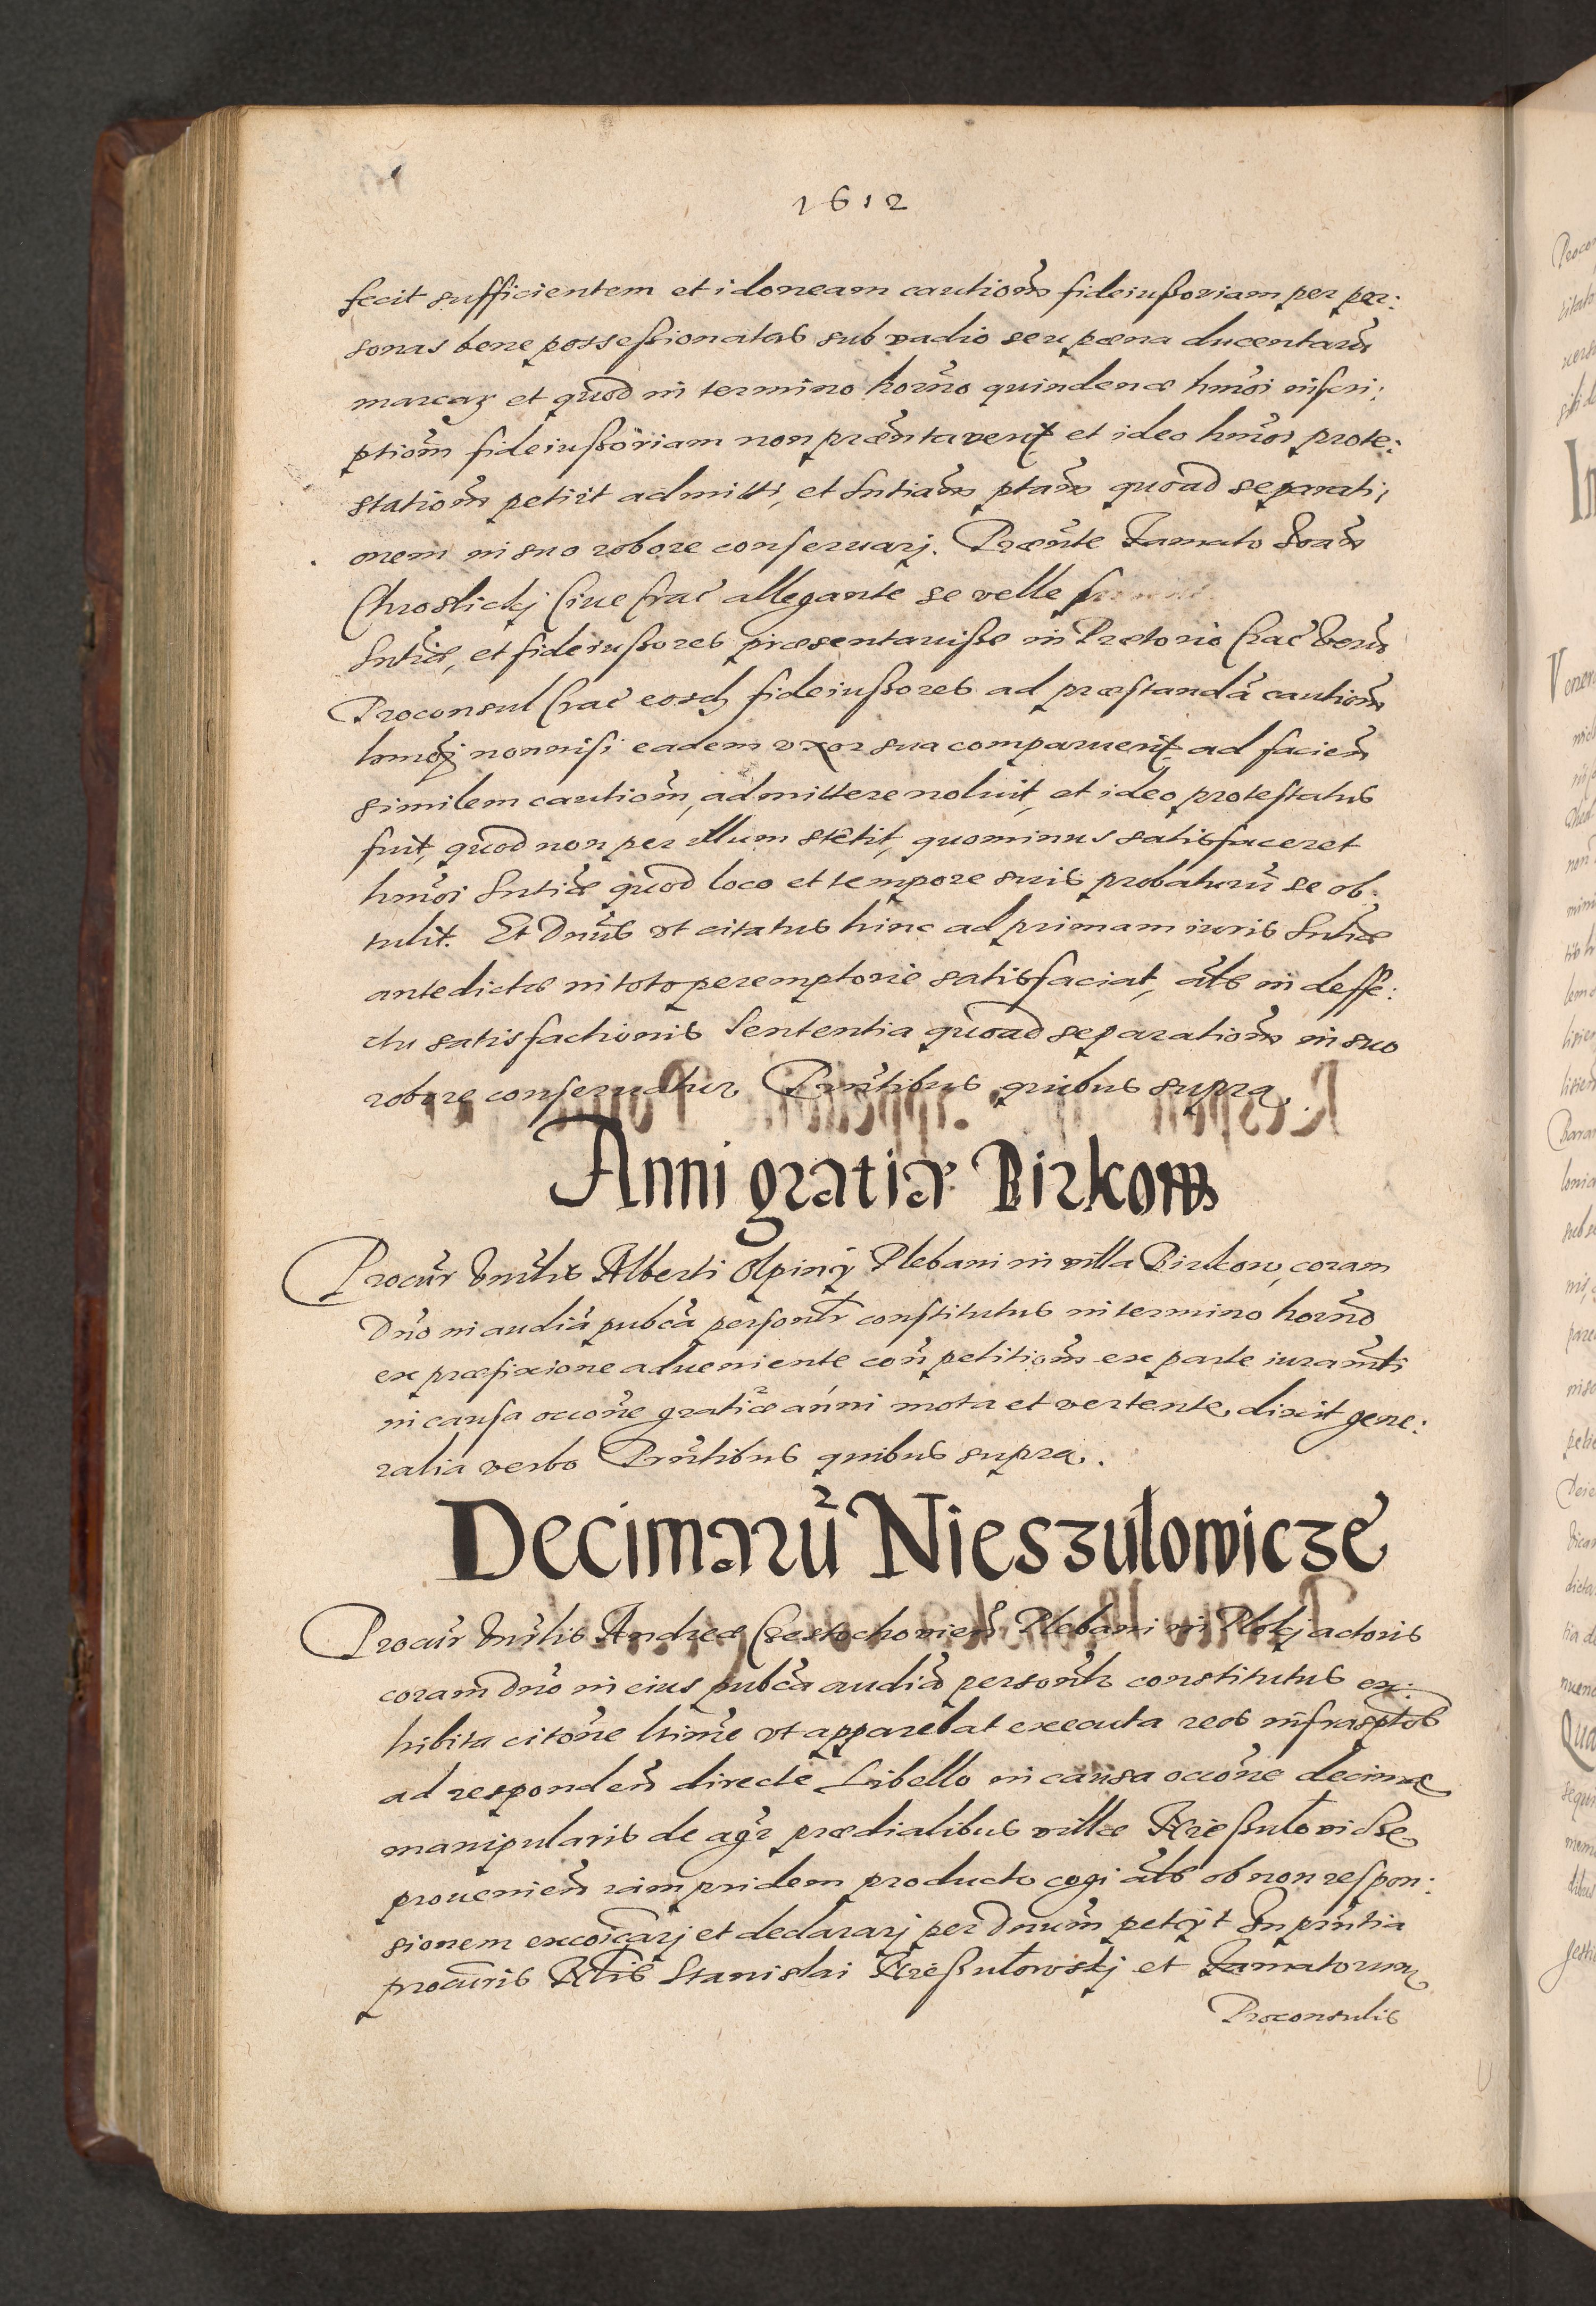 1612
fecit sufficientem et idoneam cautiom̃ fideiußoriam per per:
sonas bene possessionatas sub vadio seu pæna ducentarũ
marcaꝝ et quod in termino horno quindenæ hmõi inscri:
ptiom̃ fideiußoriam non præntaverit et ideo hmõi prote:
statiom̃ petiit admitti, et Sntiam̃ ptam̃ quoad separati:
onem in suo robore conseruarj. Præñte Famato Joañ
Chroslickj Ciue Crac̃ allegante se velle
Sntiæ, et fideiußores præsentauisse in Prætorio Crac̃ Verũ
Proconsul Crac̃ eosdꝫ fideiußores ad præstandã cautiom̃
hmõj nonnisi eadem vxor sua comparuerit ad facien̄
similem cautiom̃, admittere noluit, et ideo protestatus
fuit, quod non per illum stetit, quominus satisfaceret
hmõi Sntiæ quod loco et tempore suis probaturũ se ob:
tulit. Et Dnũs vt citatus hinc ad primam iuris Sntiæ
antedictæ in toto peremptorie satisfaciat, als in deffe:
ctu satisfactionis Sententia quoad separatiom̃ in suo
robore conseruatur Pñtibus quibus supra.
Anni gratiæ Birkow
Procur̃ Vnĩlis Alberti Olpinij Plebani in villa Birkow, coram
Dño in audiã pubcã personlr̃ constitutus in termino horno
ex præfixione adueniente con̄ petitiom̃ ex parte iuramti
in causa occõne gratiæ anni mota et vertente, dixit gene:
ralia verbo Pñtibus quibus supra.
Decimarũ Nieszulowicze
Procur̃ Vnĩlis Andreæ Czestochowien̄ Plebani in Plokj actoris
coram Dño in eius pubcã audiã personlr̃ constitutus ex:
hibita citõne ltime vt apparebat executa reos infrasptos
ad responden̄ directe Libello in causa occõne decimæ
manipularis de agr̃ prædialibus villæ Nießułowicze
prouenien̄ iam pridem producto cogi als ob non respon:
sionem excoĩcarj et declararj per Dnum̃ petijt In pñtia
procuris Nblis Stanislai Nießułowskj et Famatorum
Proconsulis